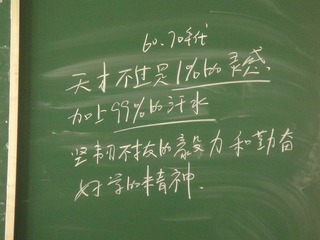 60.70年代
天才不过是1%的灵感
加上99%的汗水
坚韧不拔的毅力和勤奋
好学的精神.